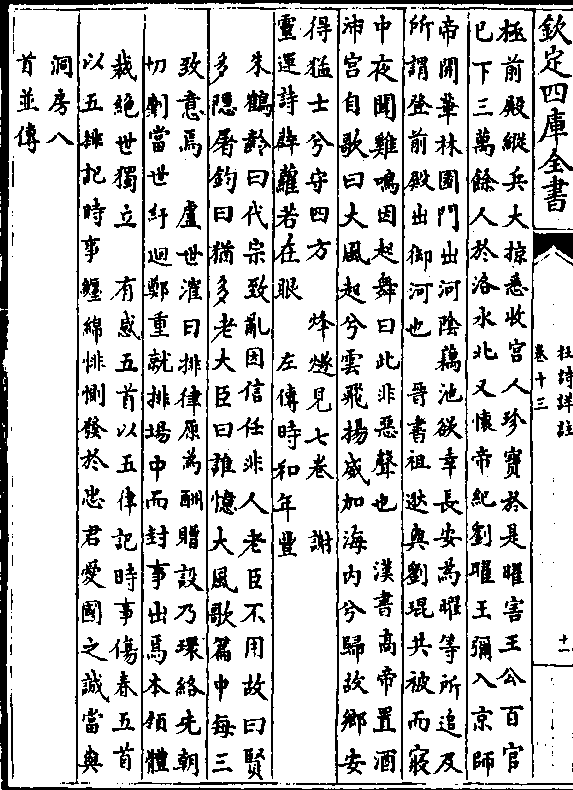 欽定四庫全書
杜詩詳註
卷十三
十一
極前殿縱兵大掠悉收宮人珍寶於是曜害王公百官
巳下三萬餘人於洛水北又懷帝紀劉曜王彌入京師
帝開華林園門出河陰藕池欲幸長安為曜等所追及
所謂登前殿出御河也 晉書祖逖與劉琨共被而寢
中夜聞雞鳴因起舞曰此非惡聲也 漢書高帝置酒
沛宮自歌曰大風起兮雲飛揚威加海內兮歸故鄉安
得猛士兮守四方 烽燧見七卷 謝
靈運詩薜蘿若在眼 左傳時和年豐
朱鶴齡曰代宗致亂因信任非人老臣不用故曰賢
多隱屠釣曰猶多老大臣曰誰憶大風歌篇中每三
致意焉 盧世㴶曰排律原為酬贈設乃環絡先朝
切劘當世紆迴鄭重就排場中而封事出焉本領體
裁絕世獨立 有感五首以五律記時事傷春五首
以五排記時事纏綿悱惻發於忠君愛國之誠當與
洞房八
首並傳